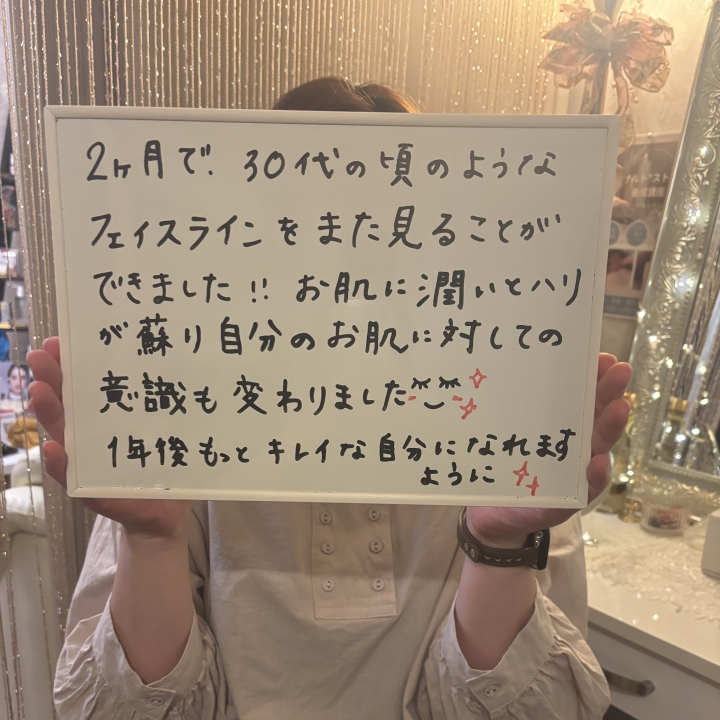 2ヶ月で、30代の頃のような
フェイスラインをまた見ることが
できました!! お肌に潤いとハリ
が蘇り自分のお肌に対しての
意識も変わりました
1年後もっとキレイな自分になれます
ように